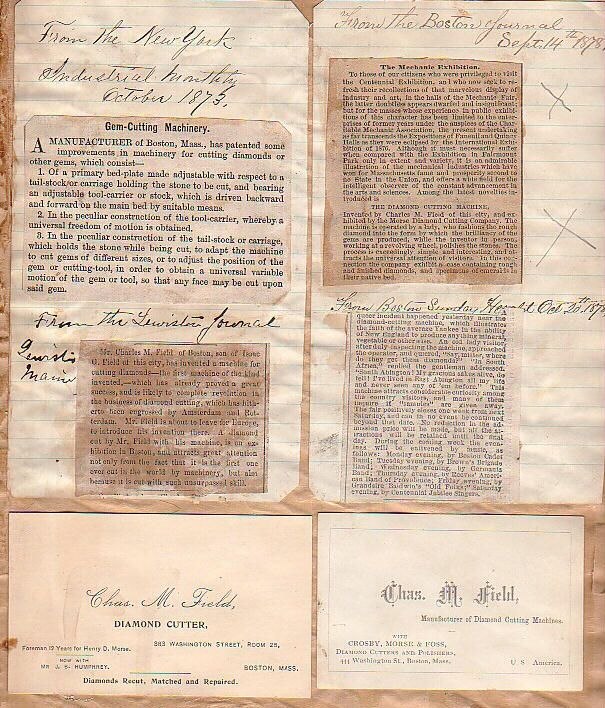 From the New York
Industrial Monthly
October 1873.
Gem-Cutting Machinery.
A MANUFACTURER of Boston, Mass., has patented some
improvements in machinery for cutting diamonds or
other gems, which consist—
1. Of a primary bed-plate made adjustable with respect to a
tail-stock or carriage holding the stone to be cut, and bearing
an adjustable tool-carrier or stock, which is driven backward
and forward on the main bed by suitable means.
2. In the peculiar construction of the tool-carrier, whereby a
universal freedom of motion is obtained.
3. In the peculiar construction of the tail-stock or carriage,
which holds the stone while being cut, to adapt the machine
to cut gems of different sizes, or to adjust the position of the
gem or cutting-tool, in order to obtain a universal variable
motion of the gem or tool, so that any face may be cut upon
said gem.
From the Lewiston Journal
Lewiston
Maine
Mr. Charles M. Field of Boston, son of Isaac
G. Field of this city, has invented a machine for
cutting diamonds—the first machine of the kind
invented,—which has already proved a great
success, and is likely to complete revolution in
the business of diamond cutting, which has hith-
erto been engrossed by Amsterdam and Rot-
terdam. Mr. Field is about to leave for Europe,
to introduce his invention there. A diamond
cut by Mr. Field with his machine, is on ex-
hibition in Boston, and attracts great attention
not only from the fact that it is the first one
ever cut in the world by machinery, but also
because it is cut with such unsurpassed skill.
From the Boston Journal
Sept. 14th 1878
The Mechanic Exhibition.
To those of our citizens who were privileged to visit
the Centennial Exhibition, and who now seek to re-
fresh their recollections of that marvelous display of
industry and art, in the halls of the Mechanic Fair,
the latter doubtless appears dwarfed and insignificant;
but for the masses whose experience in public exhibi-
tions of this character has been limited to the enter-
prises of former years under the auspices of the Char-
itable Mechanic Association, the present undertaking
as far transcends the Expositions of Faneuil and Quincy
Halls as they were eclipsed by the International Exhibi-
tion of 1876. Although it must necessarily suffer
when compared with the Exhibition in Fairmount
Park only in extent and variety, it is an admirable
illustration of the mechanical industries which have
won for Massachusetts fame and prosperity second to
no State in the Union, and offers a wide field for the
intelligent observer of the constant advancement in
the arts and sciences. Among the latest novelties in-
troduced is
THE DIAMOND CUTTING MACHINE,
Invented by Charles M. Field of this city, and ex-
hibited by the Morse Diamond Cutting Company. The
machine is operated by a lady, who fashions the rough
diamond into the form by which the brilliancy of the
gems are produced, while the inventor in person,
working at a revolving wheel, polishes the stones. The
process is exceedingly simple and interesting, and at-
tracts the universal attention of visitors. In this con-
nection the company exhibits a case containing rough
and finished diamonds, and specimens of emeralds in
their native bed.
From Boston Sunday Herald Oct 20th 1878
queer incident happened yesterday near the
diamond-cutting machine, which illustrates
the faith of the average Yankee in the ability
of New England to produce anything mineral,
vegetable or otherwise. An old lady visitor,
after duly inspecting the machine, approached
the operator, and queried, "Say, mister, where
do they get them diamonds?" "In South
Africa," replied the gentleman addressed.
"South Abington! My gracious sakes alive, do
tell! I've lived in East Abington all my life
and never seen any of 'em before." This
machine attracts considerable curiosity among
the country visitors, and many of them
inquire if "samples" are given away.
The fair positively closes one week from next
Saturday, and can in no event be continued
beyond that date. No reduction in the ad-
mission price will be made, but all the at-
tractions will be retained until the final
day. During the coming week the even-
ings will be enlivened by music, as
follows: Monday evening, by Boston Cadet
Band; Tuesday evening, by Brown's Brigade
Band; Wednesday evening, by Germania
Band; Thursday evening, by Reeves' Ameri-
can Band of Providence; Friday evening, by
Grandsire Baldwin's "Old Folks;" Saturday
evening, by Centennial Jubilee Singers.
Chas. M. Field,
DIAMOND CUTTER,
383 WASHINGTON STREET, ROOM 25,
Foreman 12 Years for Henry D. Morse.
NOW WITH
MR J. S. HUMPHREY.
BOSTON, MASS.
Diamonds Recut, Matched and Repaired.
Chas. M. Field,
Manufacturer of Diamond Cutting Machines.
WITH
CROSBY, MORSE & FOSS,
DIAMOND CUTTERS AND POLISHERS,
444 Washington St., Boston, Mass,
U S America.